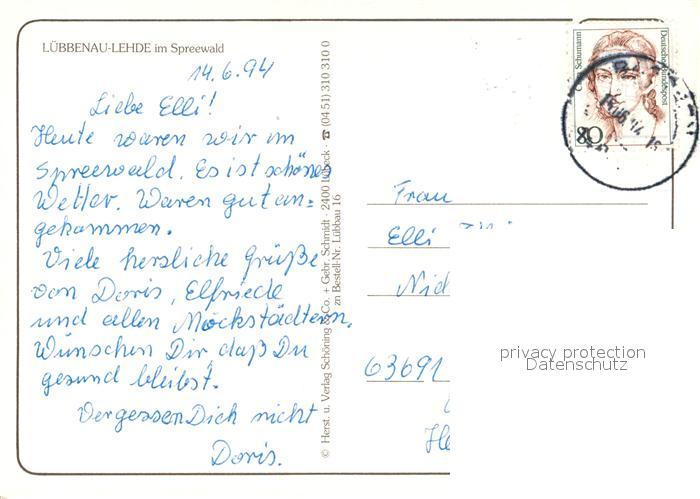 LÜBBENAU-LEHDE im Spreewald
14.6.94
Liebe Elli!
Heute waren wir im
Spreewald. Es ist schönes
Wetter. Waren gut an=
gekommen.
Viele herzliche Grüße
von Doris, Elfriede
und allen Möckstädtern.
Wünschen Dir daß Du
gesund bleibst.
Vergessen Dich nicht
Doris.
© Herst. u. Verlag Schöning & Co. + Gebr. Schmidt · 2400 Lübeck · ☎ (04 51) 310 310 0
zn Bestell-Nr. Lübbau 16
Clara Schumann
Deutsche Bundespost
80
Frau
Elli
Nid
63691
He
privacy protection
Datenschutz